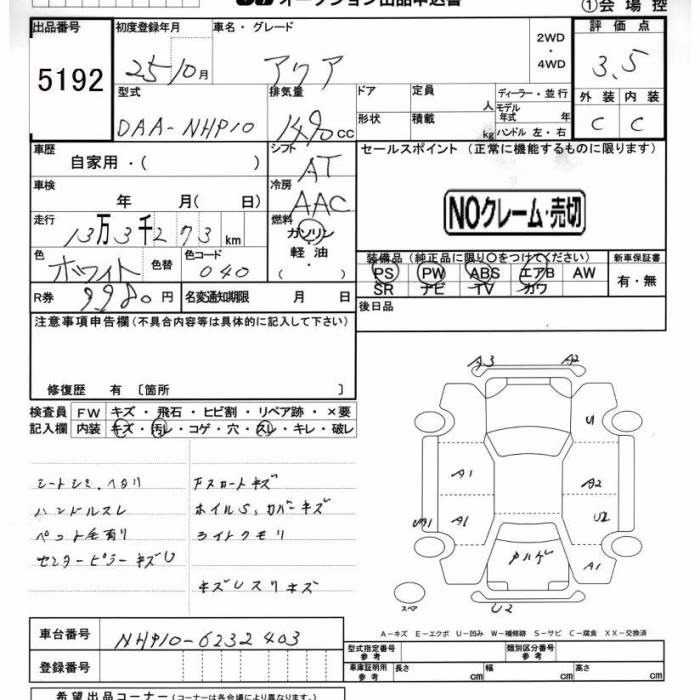 オークション出品申込書
①会場控
出品番号 初度登録年月 車名・グレード 2WD ・ 4WD 評価点
5192 25/10月 アクア 3.5
型式 排気量 ドア 定員 人 ディーラー・並行 外装 内装
DAA-NHP10 1490cc 形状 積載 kg モデル年式 年 ハンドル 左・右 C C
車歴 自家用・( ) シフト AT セールスポイント (正常に機能するものに限ります)
車検 年 月( 日) 冷房 AAC
NOクレーム・売切
走行 13万3千273km 燃料 ガソリン 軽油 ・
色 ホワイト 色替 色コード 040
装備品 (純正品に限り○をつけてください) 新車保証書
PS PW ABS エアB AW 有・無
SR ナビ TV カワ
R券 9980円 名変通知期限 月 日
後日品
注意事項申告欄 (不具合内容等は具体的に記入して下さい)
修復歴 有 〔箇所 〕
検査員 FW キズ・飛石・ヒビ割・リペア跡・×要
記入欄 内装 キズ・汚レ・コゲ・穴・スレ・キレ・破レ
シートシミ、ヘタリ Fスカートキズ
ハンドルスレ ホイルS、カバーキズ
ペット毛有り ライトクモリ
センターピラーキズU
キズUスリキズ
A3 A2
U
A1 A2
A1 U2
Pハゲ
A1
スペア U2
A－キズ E－エクボ U－凹み W－補修跡 S－サビ C－腐食 XX－交換済
車台番号 NHP10-6232403
登録番号
型式指定番号 参考 類別区分番号 参考
車庫証明用 参考 長さ cm 幅 cm 高さ cm
希望出品コーナー (コーナーは各会場により異なります。)